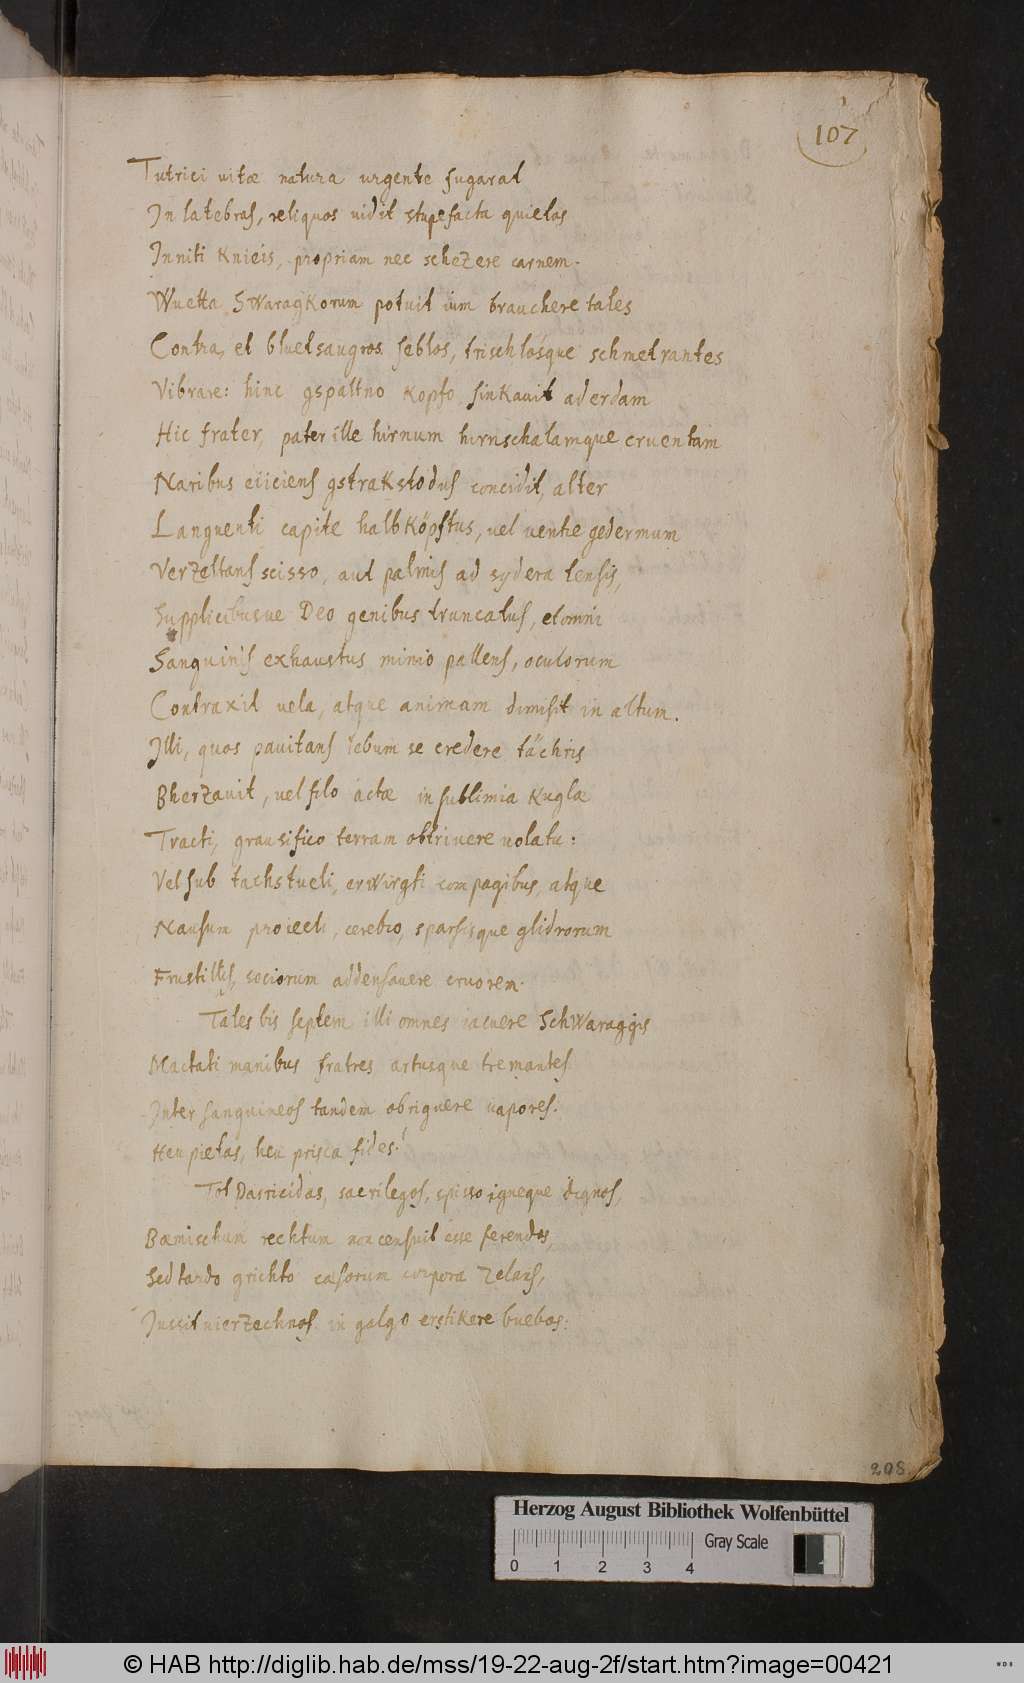 107
Tutrici uitæ natura urgente fugarat
In latebras, reliquos uidit stupefacta quietos
Inniti Knieis, propriam nec scheZere carnem.
Wuetta SWaragKorum potuit ium brauchere tales
Contra, et bluetsaugros seblos, trischlosque schmetrantes
Vibrare: hinc gspaltno Kopfo sinKauit ad erdam
Hic frater, pater ille hirnum hirnschalamque cruentam
Naribus eiiciens gstraKstodus concidit, alter
Languenti capite halbKöpftus, uel uentre gedermum
VerZettans scisso, aut palmis ad sydera tensis,
Supplicibusue Deo genibus truncatus, et omni
Sanguinis exhaustus minio pallens, oculorum
Contraxit uela, atque animam dimisit in altum.
Illi, quos pauitans lebum se credere tächris
BherZauit, uel filo actæ in sublimia Kuglæ
Tracti, grausifico terram obtriuere uolatu:
Vel sub tachstueli, erWirgti compagibus, atque
Hausum proiecti, cerebro, sparsisque glidrorum
Frustillis, sociorum addensauere cruorem.
Tales bis septem illi omnes iacuere SchWaraggis
Mactati manibus fratres artusque tremantes
Inter sanguineos tandem obriguere uapores.
Heu pietas, heu prisca fides!
Tot Parricidas, sacrilegos, spisso igneque dignos,
Bœmischum rechtum non censuit esse ferendos,
Sed tardo grichto cæsorum corpora Zelans,
Jussit uierZechnos in galgo erstiKere buebos:
208
Herzog August Bibliothek Wolfenbüttel
Gray Scale
0 1 2 3 4
© HAB http://diglib.hab.de/mss/19-22-aug-2f/start.htm?image=00421